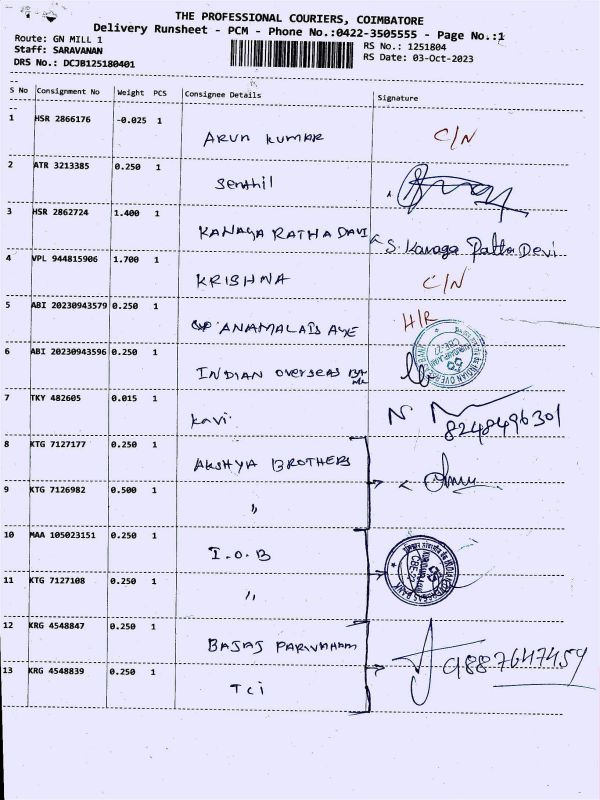 THE PROFESSIONAL COURIERS, COIMBATORE
Delivery Runsheet - PCM - Phone No.:0422-3505555 - Page No.:1
Route: GN MILL 1
Staff: SARAVANAN
DRS No.: DCJB125180401
RS No.: 1251804
RS Date: 03-Oct-2023
S No Consignment No Weight PCS Consignee Details Signature
1 HSR 2866176 -0.025 1 ARUN KUMAR C/N
2 ATR 3213385 0.250 1 Senthil
3 HSR 2862724 1.400 1 KANAGA RATHA DAVI S. Kanaga Ratha Devi
4 VPL 944815906 1.700 1 KRISHNA C/N
5 ABI 20230943579 0.250 1 ANAMALAIS AYE H/R
6 ABI 20230943596 0.250 1 INDIAN OVERSEAS
7 TKY 482605 0.015 1 Kavi N 8248496301
8 KTG 7127177 0.250 1 AKSHYA BROTHERS
9 KTG 7126982 0.500 1 "
10 MAA 105023151 0.250 1 I.O.B
11 KTG 7127108 0.250 1 "
12 KRG 4548847 0.250 1 BAJAS PARIVAHAM 9887647459
13 KRG 4548839 0.250 1 TCI